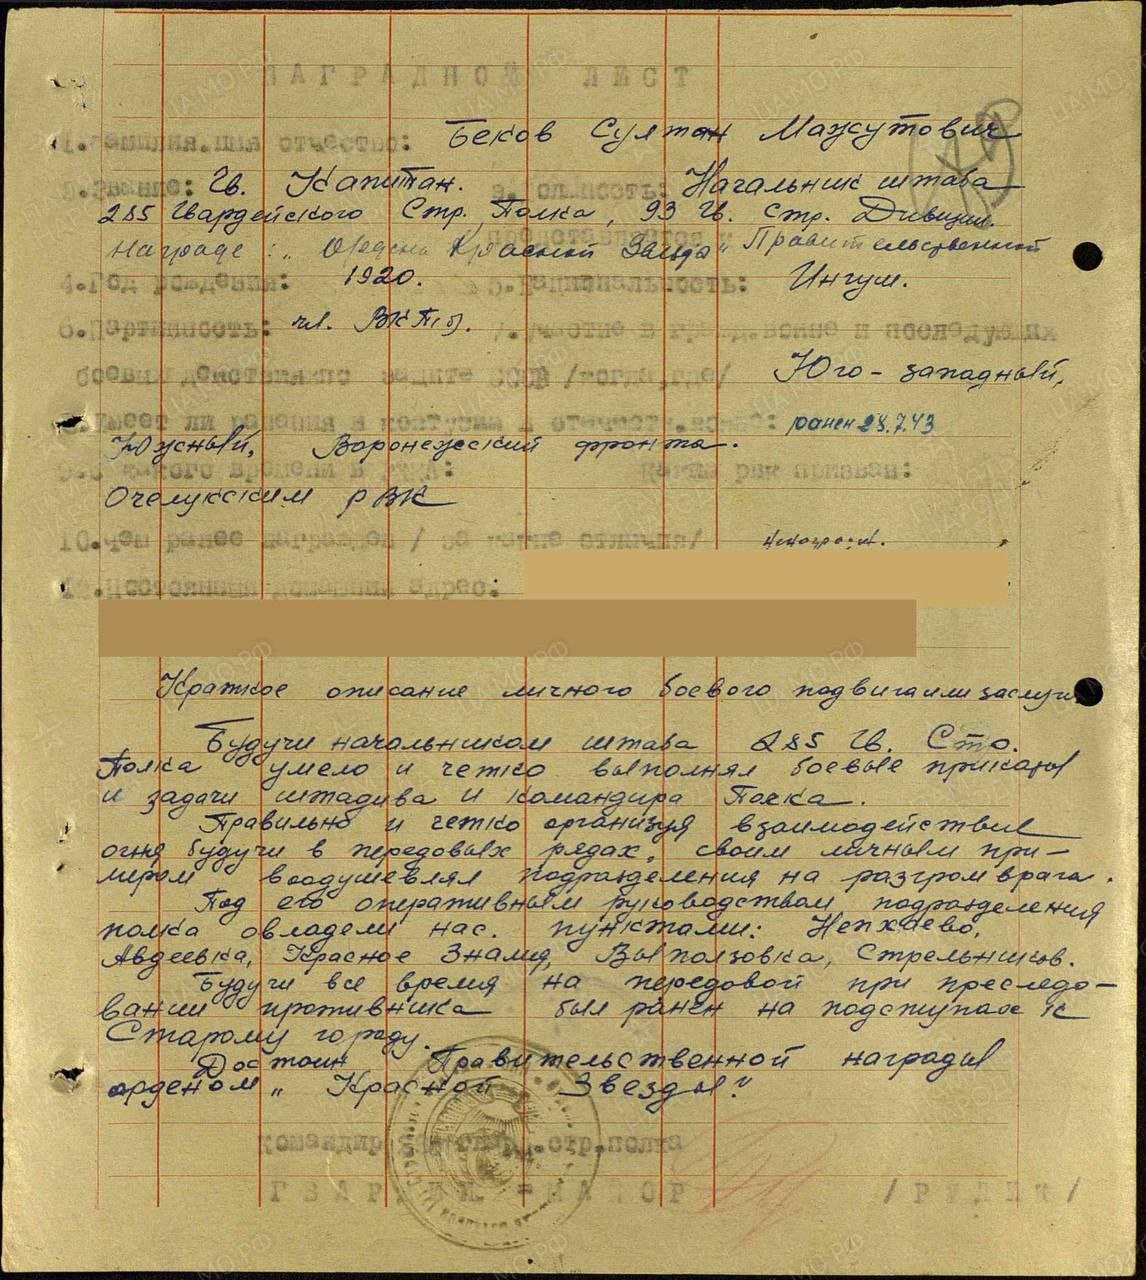 НАГРАДНОЙ ЛИСТ
1. Фамилия, имя отчество: Беков Султан Мажутович
2. Звание: Гв. Капитан. 3. Должность: Начальник штаба
285 Гвардейского Стр. Полка, 93 Гв. Стр. Дивизии.
представляется к
Награде: „Ордена Красной Звезды" Правительственной
4. Год рождения: 1920. 5. Национальность: Ингуш.
6. Партийность: чл. ВКП(б). 7. Участие в гражд. войне и последующих
боевых действиях по защите СССР /когда, где/ Юго-западный,
8. Имеет ли ранения и контузии в отечеств. войне: ранен 28.7.43
Южный, Воронежский фронта.
9. С какого времени в РККА: Каким рвк призван:
Очемукским РВК
10. Чем ранее награжден /за какие отличия/
Постоянный домашний адрес:
Краткое описание личного боевого подвига или заслуги
Будучи начальником штаба 285 Гв. Стр.
Полка умело и четко выполнял боевые приказы
и задачи штадива и командира Полка.
Правильно и четко организуя взаимодействие
огня будучи в передовых рядах, своим личным при-
мером воодушевлял подразделения на разгром врага.
Под его оперативным руководством подразделения
полка овладели нас. пунктами: Непхаево,
Авдеевка, Красное Знамя, Выползовка, Стрельников.
Будучи все время на передовой при преследо-
вании противника был ранен на подступах к
Старому городу.
Достоин Правительственной награды
орденом „Красной Звезды"
Командир 285 гвард. стр. полка
ГВАРДИИ = МАЙОР